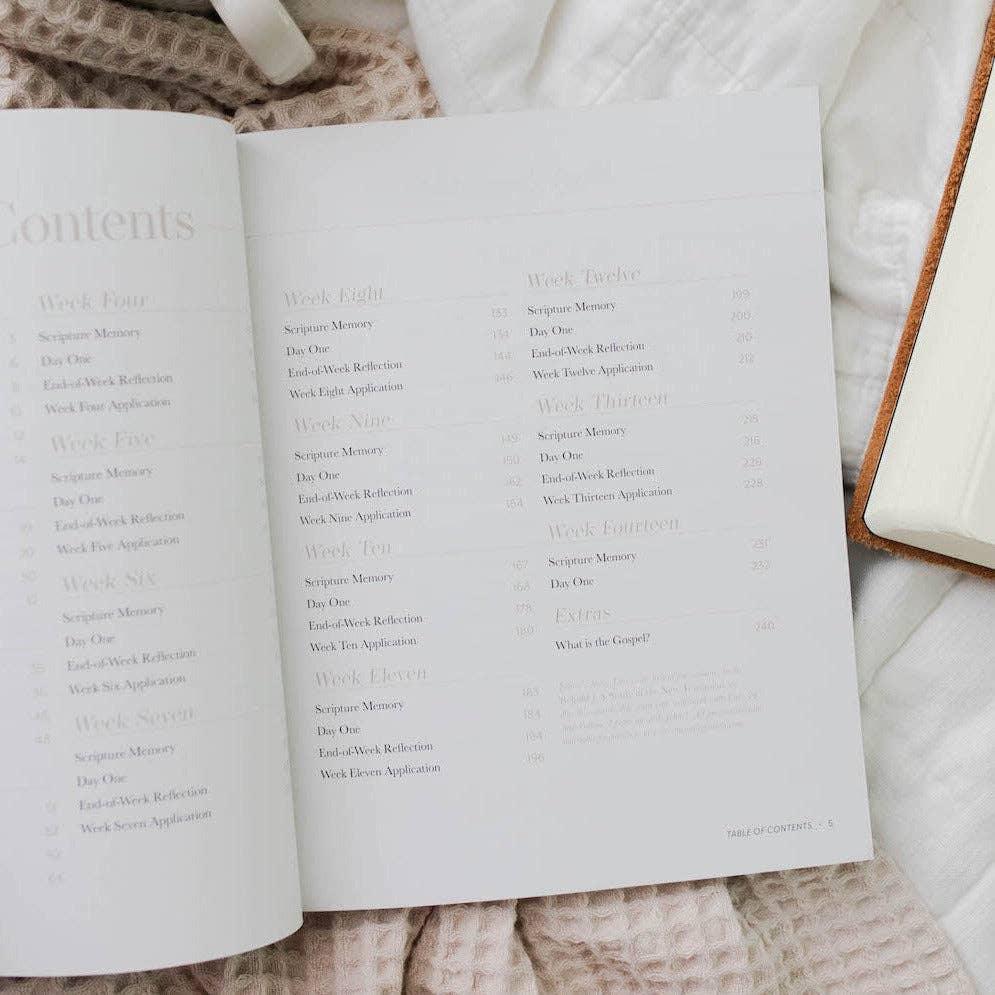 Contents
Week Four
Scripture Memory
Day One
End-of-Week Reflection
Week Four Application
Week Five
Scripture Memory
Day One
End-of-Week Reflection
Week Five Application
Week Six
Scripture Memory
Day One
End-of-Week Reflection
Week Six Application
Week Seven
Scripture Memory
Day One
End-of-Week Reflection
Week Seven Application
Week Eight
Scripture Memory 133
Day One 134
End-of-Week Reflection 144
Week Eight Application 146
Week Nine
Scripture Memory 149
Day One 150
End-of-Week Reflection 162
Week Nine Application 164
Week Ten
Scripture Memory 167
Day One 168
End-of-Week Reflection 178
Week Ten Application 180
Week Eleven
Scripture Memory 183
Day One 184
End-of-Week Reflection 194
Week Eleven Application 196
Week Twelve
Scripture Memory 199
Day One 200
End-of-Week Reflection 210
Week Twelve Application 212
Week Thirteen
Scripture Memory 215
Day One 216
End-of-Week Reflection 226
Week Thirteen Application 228
Week Fourteen
Scripture Memory 231
Day One 232
Extras
What is the Gospel? 240
TABLE OF CONTENTS - 5